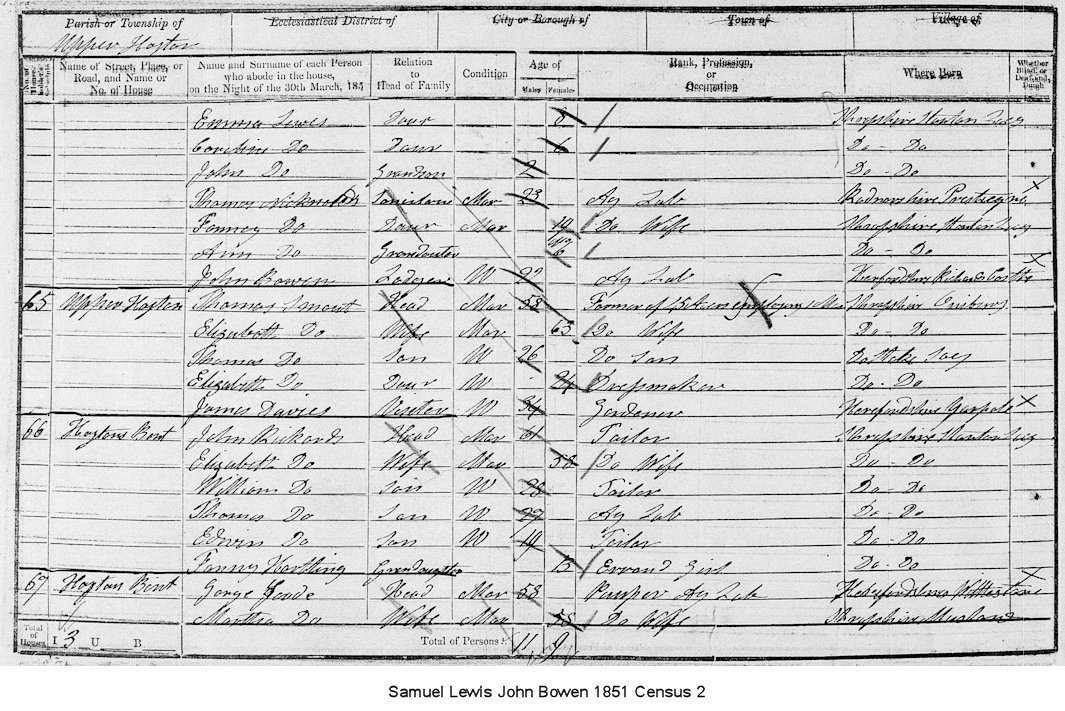 Parish or Township of Ecclesiastical District of City or Borough of Town of Village of
Upper Hopton
No. of House-holder's Schedule Name of Street, Place, or Road, and Name or No. of House Name and Surname of each Person who abode in the house, on the Night of the 30th March, 185 Relation to Head of Family Condition Age of Males Females Rank, Profession, or Occupation Where Born Whether Blind, or Deaf-and-Dumb
Emma Lewes Daur 8 Shropshire Stanton Lacy
Caroline Do Daur 6 Do - Do
John Do Grandson 2 Do - Do
Thomas Soninlaw Mar 23 Ag Lab Radnorshire
Fanney Do Daur Mar 19 Do Wife Shropshire Stanton Lacy
Ann Do Do - Do
John Bowen Lodger W 22 Ag Lab Richards Castle
65 Upper Hopton Thomas Smout Head Mar 58 Farmer of Shropshire
Elizabeth Do Wife Mar 63 Do Wife Do - Do
Thomas Do Son W 26 Do Son Do Stoke Lacy
Elizabeth Do Daur W 24 Dressmaker Do - Do
James Davies Visitor W 34 Gardener Herefordshire
66 Hoptons Bent John Rickards Head Mar 61 Tailor Shropshire Stanton Lacy
Elizabeth Do Wife Mar 58 Do Wife Do - Do
William Do Son W 28 Tailor Do - Do
Thomas Do Son W Ag Lab Do - Do
Edwin Do Son W 19 Tailor Do - Do
Fanny Grandaughter 13 Errand Girl Do - Do
67 Hopton Bent Gorge Head Mar 58 Pauper Ag Lab
Martha Do Wife Mar 58 Do Wife Shropshire
Total of Houses I 3 U B Total of Persons 11 9
Samuel Lewis John Bowen 1851 Census 2